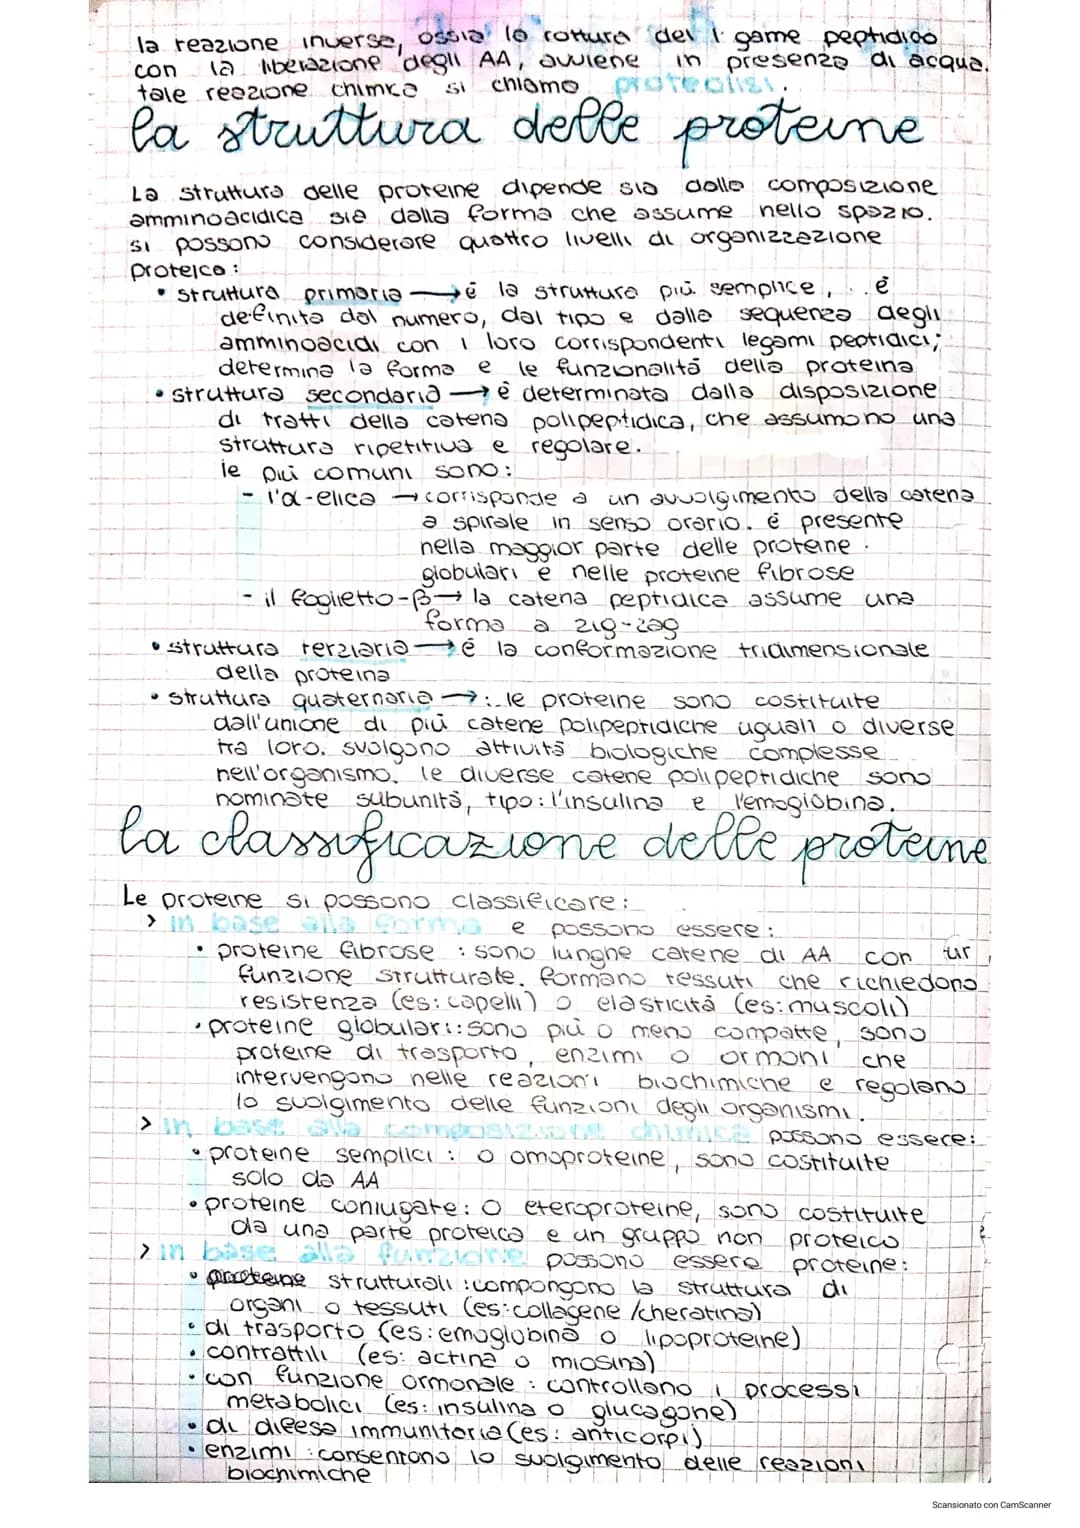 la reazione inversa, ossia la rottura del legame peptidico
con la liberazione degli AA, avviene in presenza di acqua.
tale reazione chimica si chiama proteolisi.
la struttura delle proteine
La struttura delle proteine dipende sia dalla composizione
amminoacidica sia dalla forma che assume nello spazio.
si possono considerare quattro livelli di organizzazione
proteica:
• struttura primaria → è la struttura più semplice, è
definita dal numero, dal tipo e dalla sequenza degli
amminoacidi con i loro corrispondenti legami peptidici;
determina la forma e le funzionalità della proteina
• struttura secondaria → è determinata dalla disposizione
di tratti della catena polipeptidica, che assumono una
struttura ripetitiva e regolare.
le più comuni sono:
- l'α-elica → corrisponde a un avvolgimento della catena
a spirale in senso orario. è presente
nella maggior parte delle proteine
globulari e nelle proteine fibrose
- il foglietto-β → la catena peptidica assume una
forma a zig-zag
• struttura terziaria → è la conformazione tridimensionale
della proteina
• struttura quaternaria → : le proteine sono costituite
dall'unione di più catene polipeptidiche uguali o diverse
tra loro. svolgono attività biologiche complesse
nell'organismo. le diverse catene polipeptidiche sono
nominate subunità, tipo: l'insulina e l'emoglobina.
la classificazione delle proteine
Le proteine si possono classificare:
> in base alla forma e possono essere:
• proteine fibrose : sono lunghe catene di AA con
funzione strutturale. formano tessuti che richiedono
resistenza (es: capelli) o elasticità (es: muscoli)
• proteine globulari: sono più o meno compatte, sono
proteine di trasporto, enzimi o ormoni che
intervengono nelle reazioni biochimiche e regolano
lo svolgimento delle funzioni degli organismi.
> in base alla composizione chimica possono essere:
• proteine semplici : o omoproteine, sono costituite
solo da AA
• proteine coniugate: o eteroproteine, sono costituite
da una parte proteica e un gruppo non proteico
> in base alla funzione possono essere proteine:
• proteine strutturali : compongono la struttura di
organi o tessuti (es: collagene / cheratina)
• di trasporto (es: emoglobina o lipoproteine)
• contrattili (es: actina o miosina)
• con funzione ormonale : controllano i processi
metabolici (es: insulina o glucagone)
• di difesa immunitaria (es: anticorpi)
• enzimi : consentono lo svolgimento delle reazioni
biochimiche
Scansionato con CamScanner